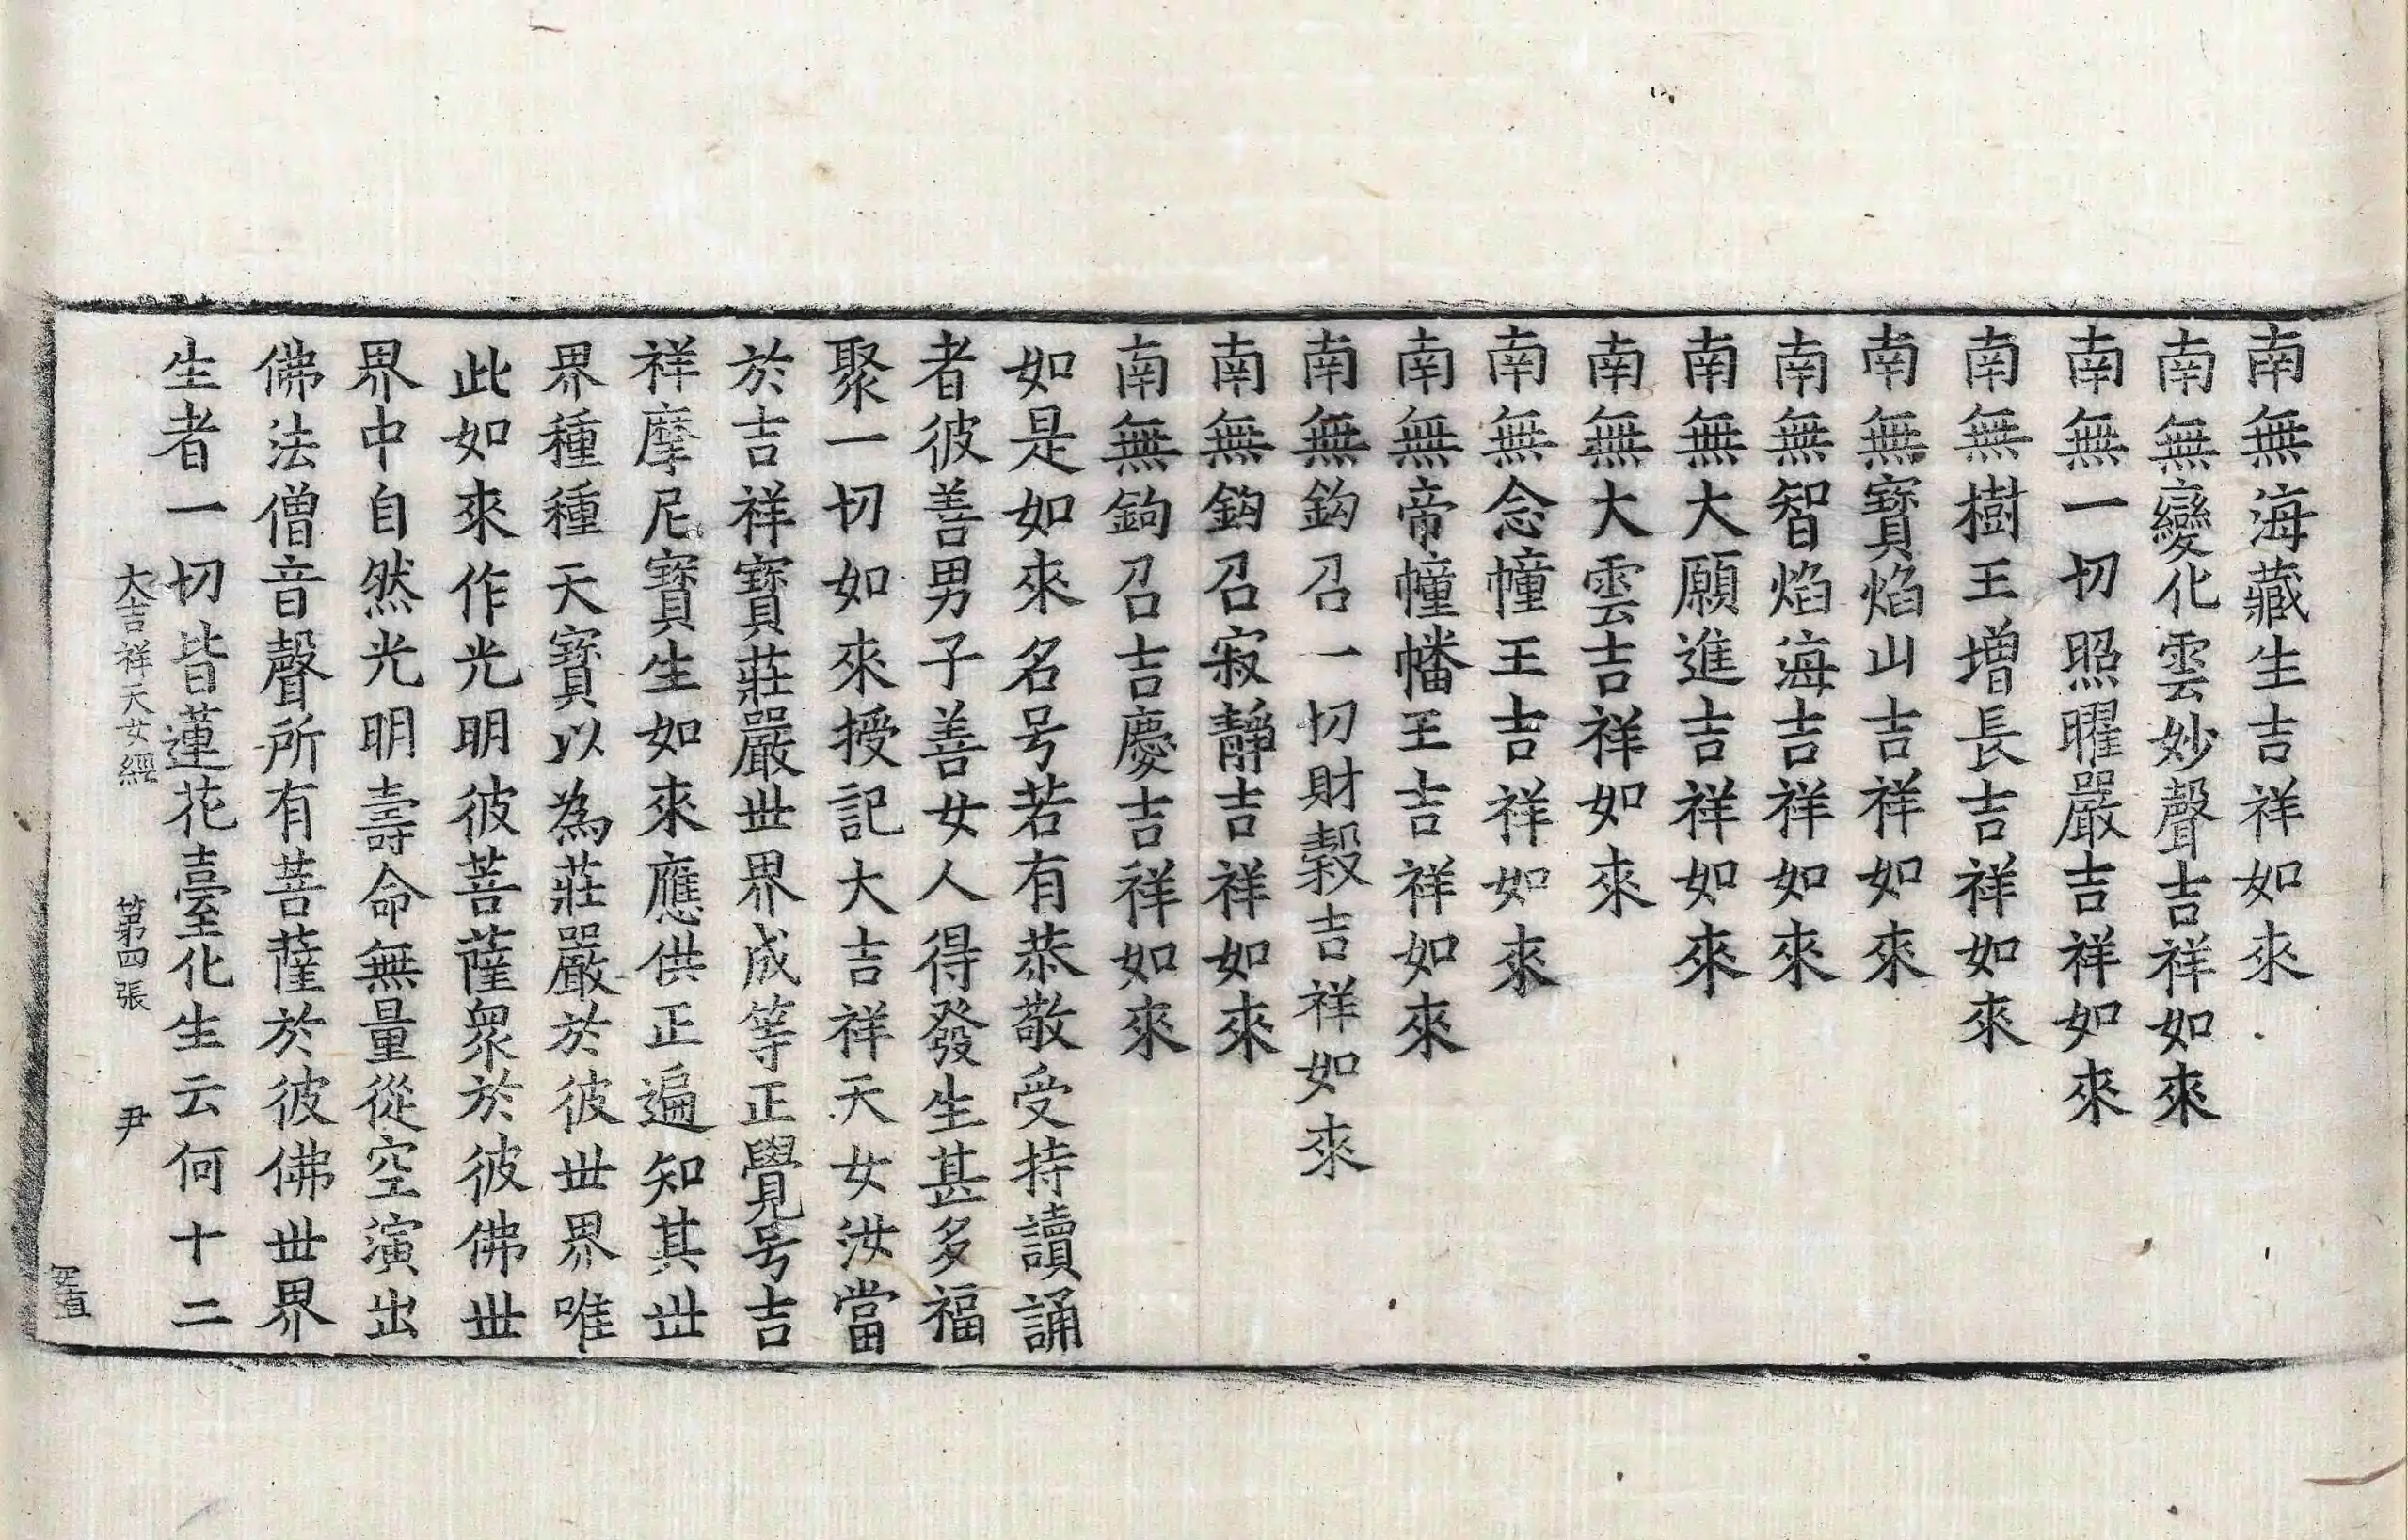 南無海藏生吉祥如來
南無變化雲妙聲吉祥如來
南無一切照曜嚴吉祥如來
南無樹王增長吉祥如來
南無寶焰山吉祥如來
南無智焰海吉祥如來
南無大願進吉祥如來
南無大雲吉祥如來
南無念幢王吉祥如來
南無帝幢幡王吉祥如來
南無鈎召一切財穀吉祥如來
南無鈎召寂靜吉祥如來
南無鉤召吉慶吉祥如來
如是如來名号若有恭敬受持讀誦
者彼善男子善女人得發生甚多福
聚一切如來授記大吉祥天女汝當
於吉祥寶莊嚴丗界成等正覺号吉
祥摩尼寶生如來應供正遍知其丗
界種種天寶以為莊嚴於彼丗界唯
此如來作光明彼菩薩衆於彼佛丗
界中自然光明壽命無量從空演出
佛法僧音聲所有菩薩於彼佛丗界
生者一切皆蓮花臺化生云何十二
大吉祥天女經 第四張 尹